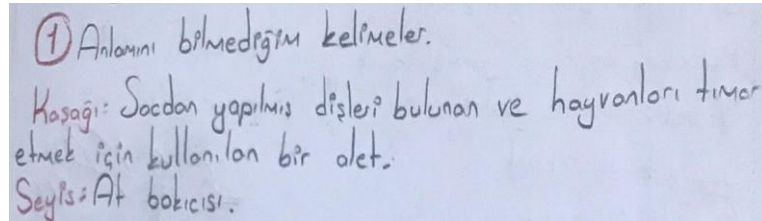 ① Anlamını bilmediğim kelimeler.
Kaşağı: Sacdan yapılmış dişleri bulunan ve hayvanları tımar
etmek için kullanılan bir alet.
Seyis: At bakıcısı.